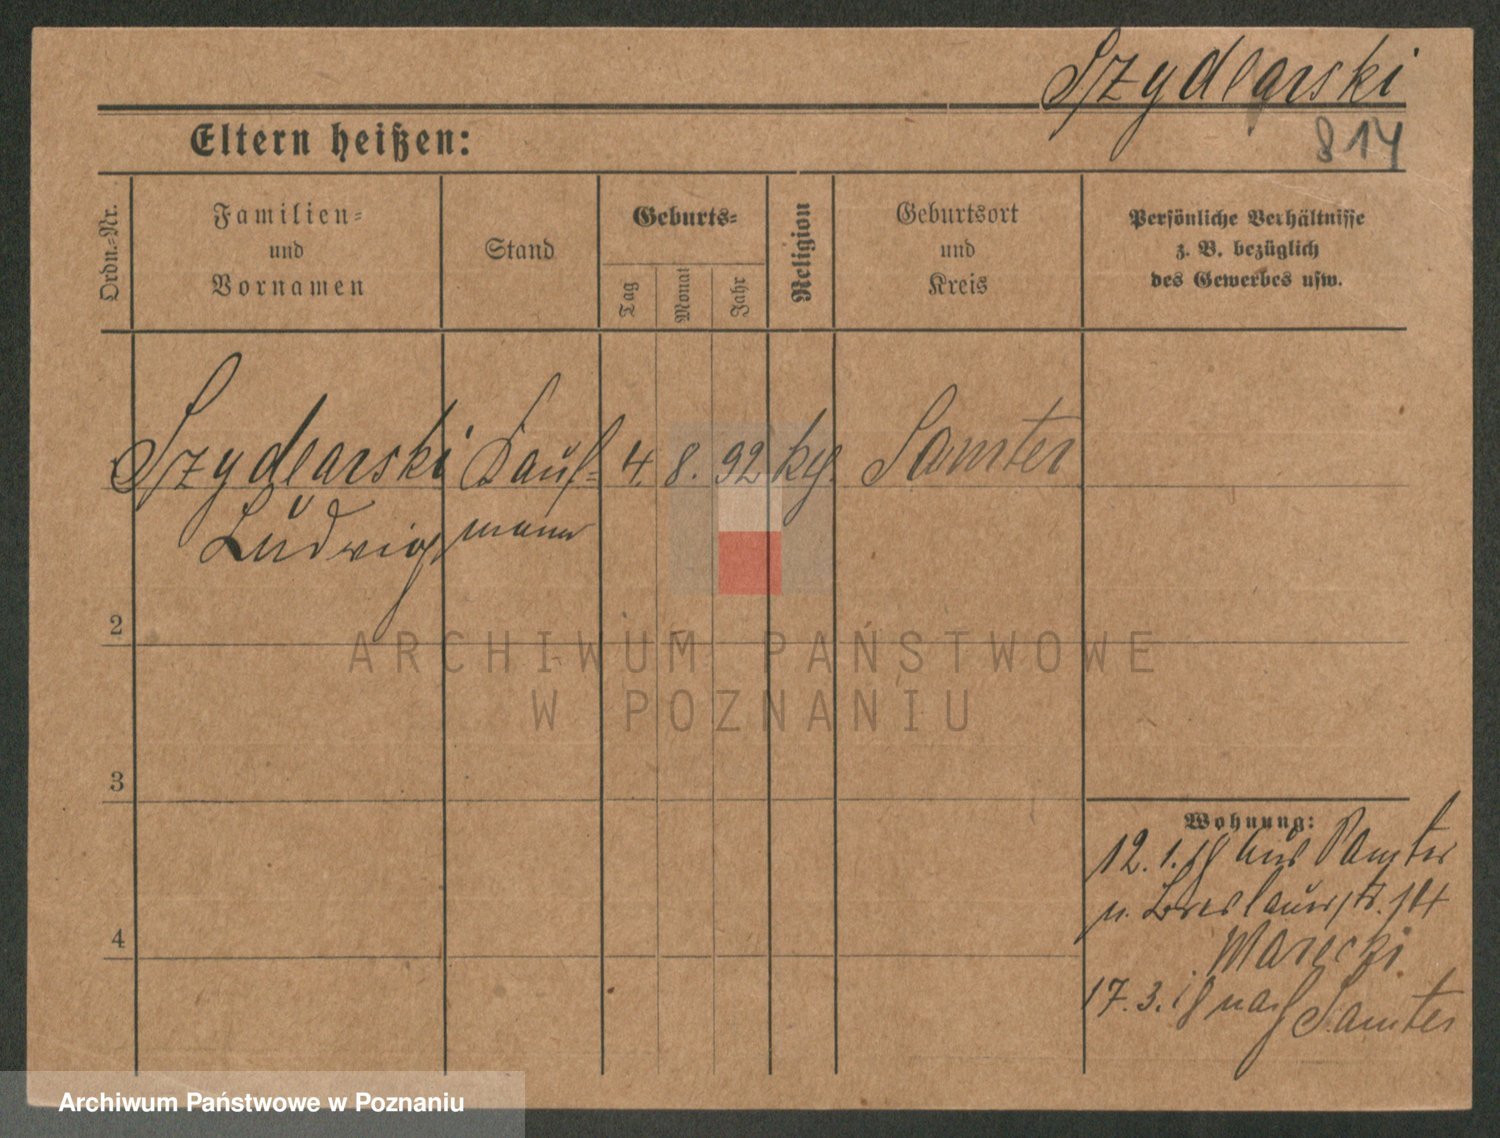 Szydlarski
814
Eltern heißen:
Ordn.-Nr.
Familien-
und
Vornamen
Stand
Geburts-
Tag
Monat
Jahr
Religion
Geburtsort
und
Kreis
Persönliche Verhältnisse
z. B. bezüglich
des Gewerbes usw.
Szydlarski Kauf- 4. 8. 92 kg. Samter
Ludwig mann
2
3
4
Wohnung:
12.1.18 aus Samter
n. Breslauerstr. 14
Marecki
17.3.18 nach Samter
ARCHIWUM PAŃSTWOWE
W POZNANIU
Archiwum Państwowe w Poznaniu